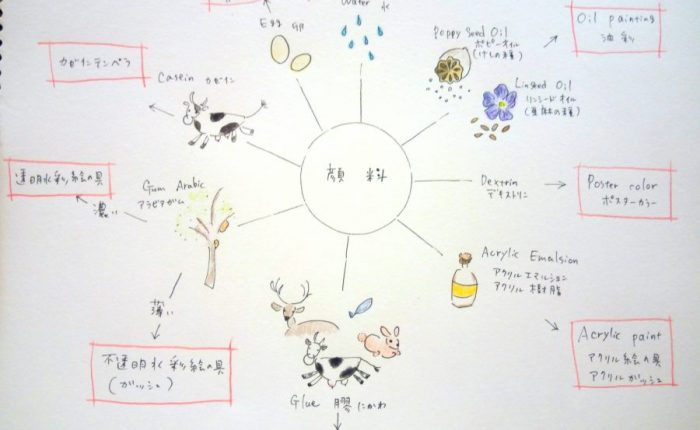 Egg
Water 水
Poppy Seed Oil
ポピーオイル
(けしの種)
Oil painting
油彩
カゼインテンペラ
Casein カゼイン
Linseed Oil
リンシードオイル
(亜麻の種)
顔料
透明水彩絵の具
濃い
Gum Arabic
アラビアガム
Dextrin
デキストリン
Poster color
ポスターカラー
Acrylic Emulsion
アクリルエマルション
アクリル樹脂
薄い
不透明水彩絵の具
(ガッシュ)
Acrylic paint
アクリル絵の具
アクリルガッシュ
Glue 膠 にかわ